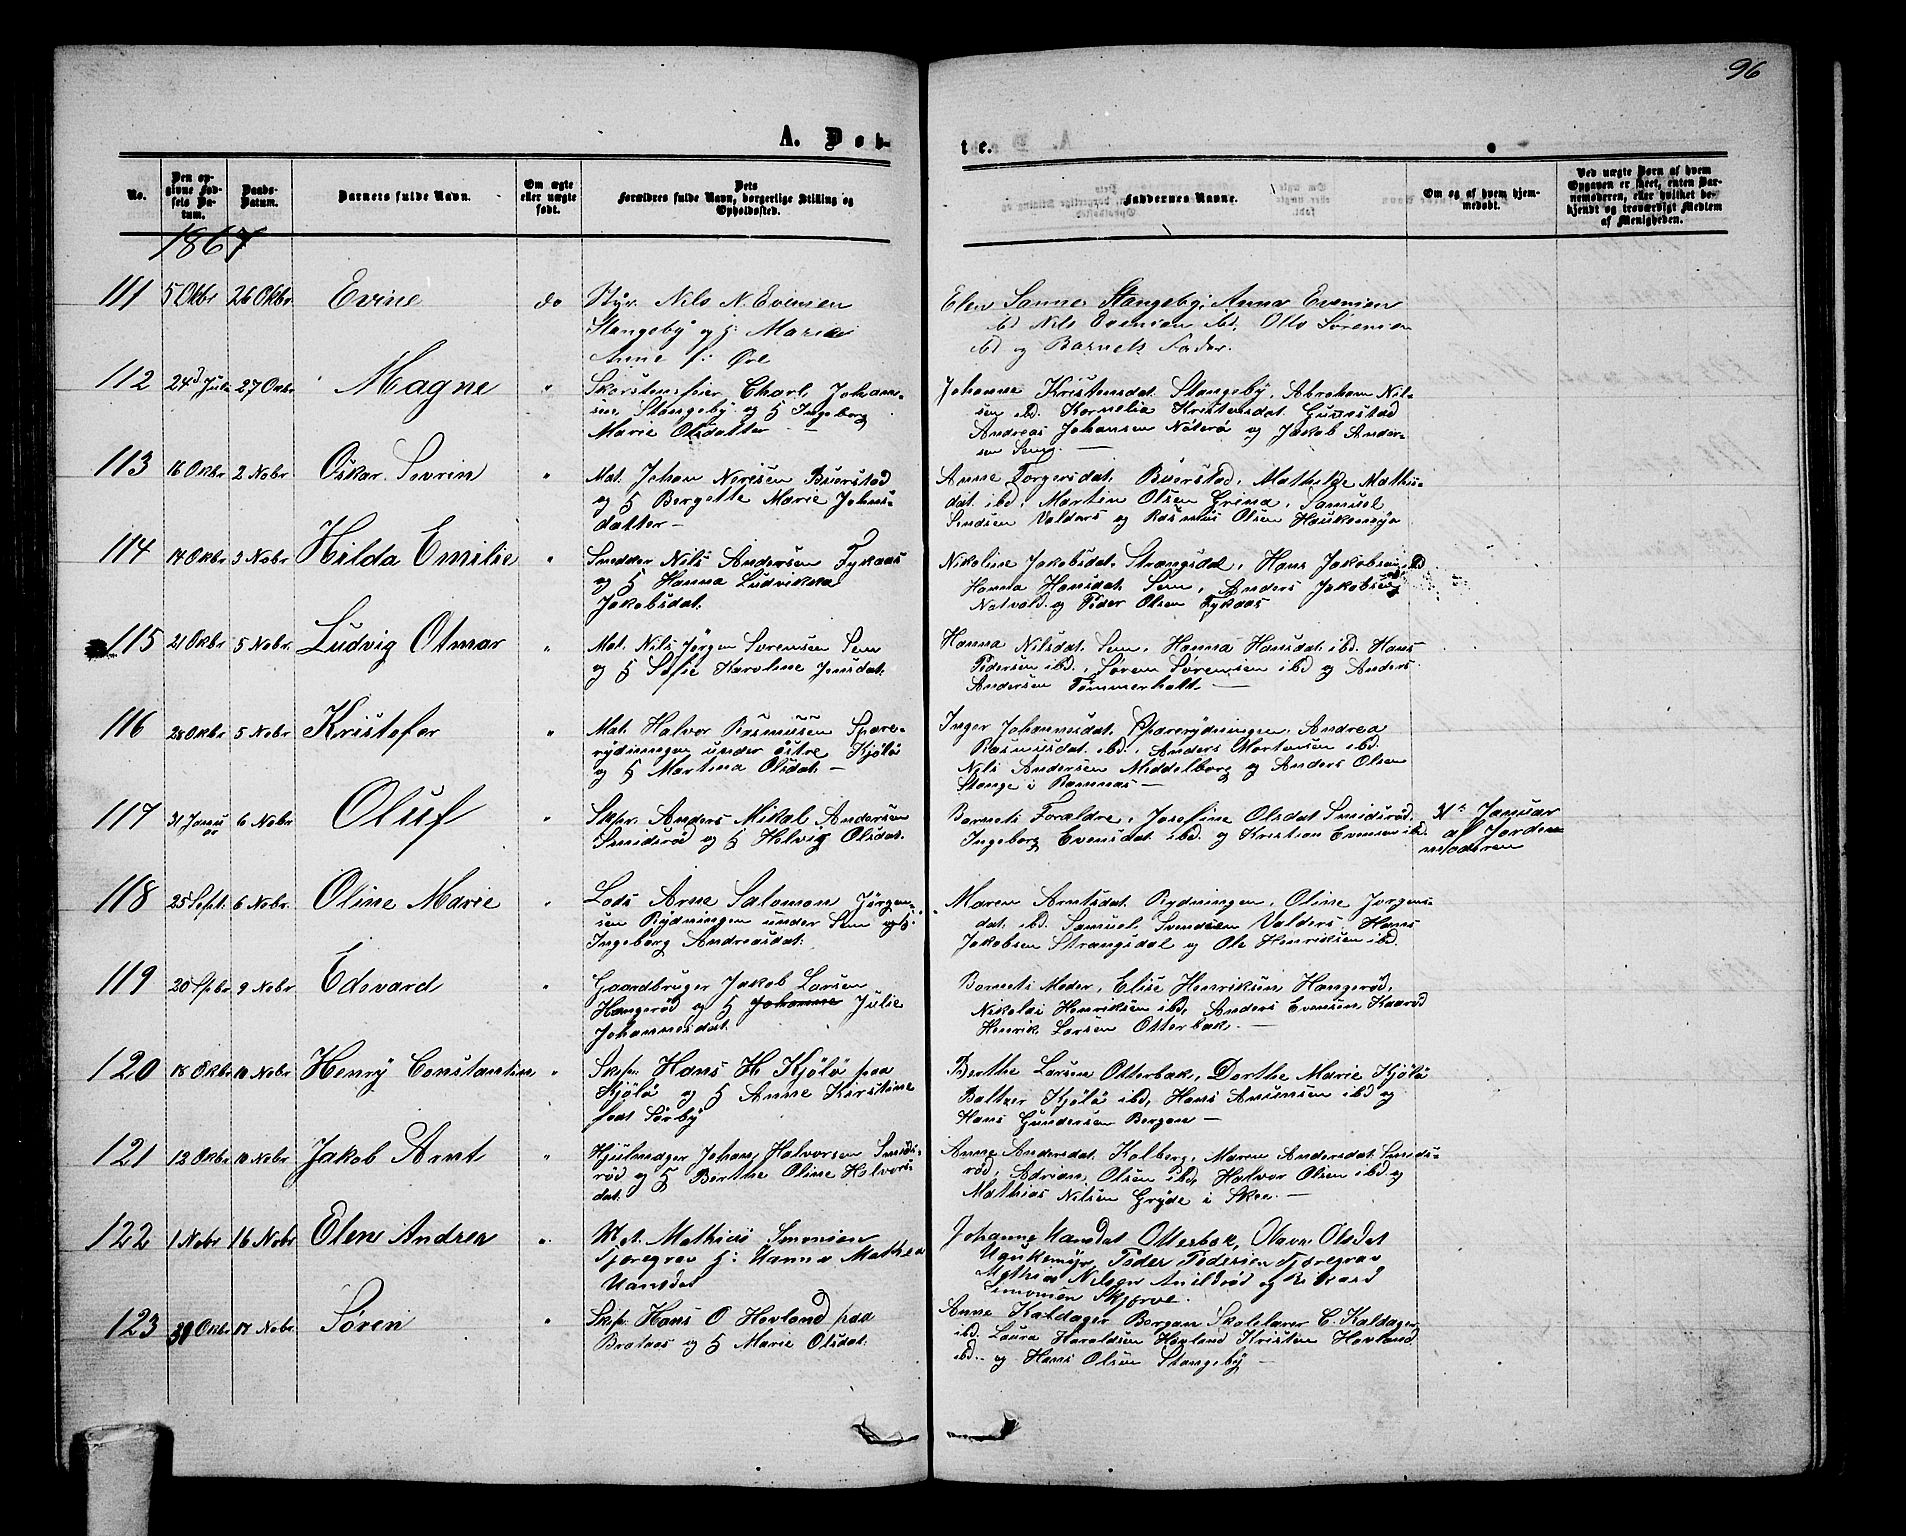 96
A. Døb-
te.
No.
Den op-
givne Fød-
sels Da-
tum.
Daabs-
Datum.
Barnets fulde Navn.
Om ægte
eller uægte
født.
Dets
Forældres fulde Navn, borgerlige Stilling og
Opholdssted.
Faddernes Navne.
Om og af hvem hjem-
medøbt.
Ved uægte Børn af hvem
Opgaven er skeet, enten Bar-
nemoderen, eller hvilket be-
kjendt og troværdigt Medlem
af Menigheden.
1867
111 5 Okbr 26 Okbr. Evine do Styr. Nils N. Evensen
Stangeby og h: Maria
Anne f: Øre
Elen Sanne Stangeby, Anna Evensen
ibd Nils Evensen ibd, Otto Sørensen
ibd og Barnets Fader.
112 24d Juli 27 Okbr Magne " Skorstensfeier Charl. Johan-
sen Stangeby og H Ingeborg
Marie Olsdatter —
Johanne Kristensdat. Stangeby, Abraham Nil-
sen ibd. Kornelia Kristensdat. Gunestad
Andreas Johansen Nøterø og Jakob Ander-
sen Sem
113 16 Okbr 2 Nobr Oskar Sevrin " Mat. Johan Nerisen Buerstad
og H Bergette Marie Johns-
datter —
Anne Torgersdat. Buerstad, Mathilde Mathis-
dat ibd, Martin Olsen Grina, Samuel
Sendsen Valders og Rasmus Olsen Haukemyr
114 14 Okbr 3 Nobr Hilda Emilie " Snedker Nils Andersen Fykaas
og H Hanna Ludvikka
Jakobsdat.
Nikoline Jakobsdat. Strangsdal, Hans Jakobsen ibd
Hanna Hansdat. Sem, Anders Jakobsen
Natvold og Peder Olsen Fykaas
115 21 Okbr 5 Nobr. Ludvig Otmar " Mat. Nils Jørgen Sørensen Sem
og H Sofie Karoline Jensdat.
Hanna Nilsdat. Sem, Hanna Hansdat. ibd. Hans
Pedersen ibd., Søren Sørensen ibd og Anders
Andersen Tømmerholt. —
116 28 Okbr 5 Nobr. Kristofer " Mat. Halvor Rasmusen Spære-
rydningen under østre Kjölö
og H Martina Olsdat. —
Inger Johannesdat. Spærerydningen, Andrea
Rasmusdat. ibd., Anders Mortensen ibd.
Nils Andersen Middelborg og Anders Olsen
Stange i Ramnæs —
117 31 Janu
ar 6 Nobr Oluf " Skpr. Anders Mikal Andersen
Smidsrød og H Helvig Olsdat.
Barnets Foraldre, Josefine Olsdat Smidsrød,
Ingeborg Evensdat ibd. og Kristian Evensen ibd.
31te Januar
af Jorden
moderen
118 25 Sept. 6 Nobr. Oline Marie " Lods Arne Salomon Jörgen-
sen Rydningen under Sem og H:
Ingeborg Andreasdat.
Maren Arntsdat. Rydningen, Oline Jorgens-
dat. ibd. Samuel Svendsen Valders, Hans
Jakobsen Strangsdal og Ole Henriksen ibd.
119 20 Spbr 9 Nobr Edevard " Gaardbruger Jakob Larsen
Hangerød og H Johanne Julie
Johannesdat.
Barnets Moder, Elise Henriksen Hangerød,
Nikolai Henriksen ibd, Anders Evensen Kaarød
Henrik Larsen Otterbæk. —
120 18 Okbr 10 Nobr Henry Constantin " Skpr. Hans H. Kjölö paa
Kjölö og H Anne Kirstine
født Sörby
Berthe Larsen Otterbæk, Dorthe Marie Kjölö
Baltzer Kjölö ibd, Hans Amunsen ibd og
Hans Gundersen Bergan —
121 12 Okbr 10 Nobr Jakob Arnt " Hjulmager Johan Halvorsen Smids-
rød og H Berthe Oline Halvors-
dat.
Anne Andersdat. Kolberg, Maren Andersdat. Smids-
rød, Adrian Olsen ibd, Halvor Olsen ibd og
Mathias Nilsen Gryde i Skee. —
122 1 Nobr 16 Nobr Elen Andrea " Mat. Mathias Simonsen
Fjæregrav H: Hanna Mathea
Hansdat
Johanne Hansdat Otterbæk, Olava Olsdat
Haukemyr, Peder Pedersen Fjæregrav
Mathias Nilsen Arildsrød og Edvard
Simonsen Skjerve.
123 Okbr 17 Nobr. Søren " Skpr. Hans O Hovland paa
Brataas og H Marie Olsdat.
Anne Kaldager Bergan Skolelærer C. Kaldager
ibd. Laura Haraldsen Hovland Kristen Hovland
ibd. og Hans Olsen Stangeby —